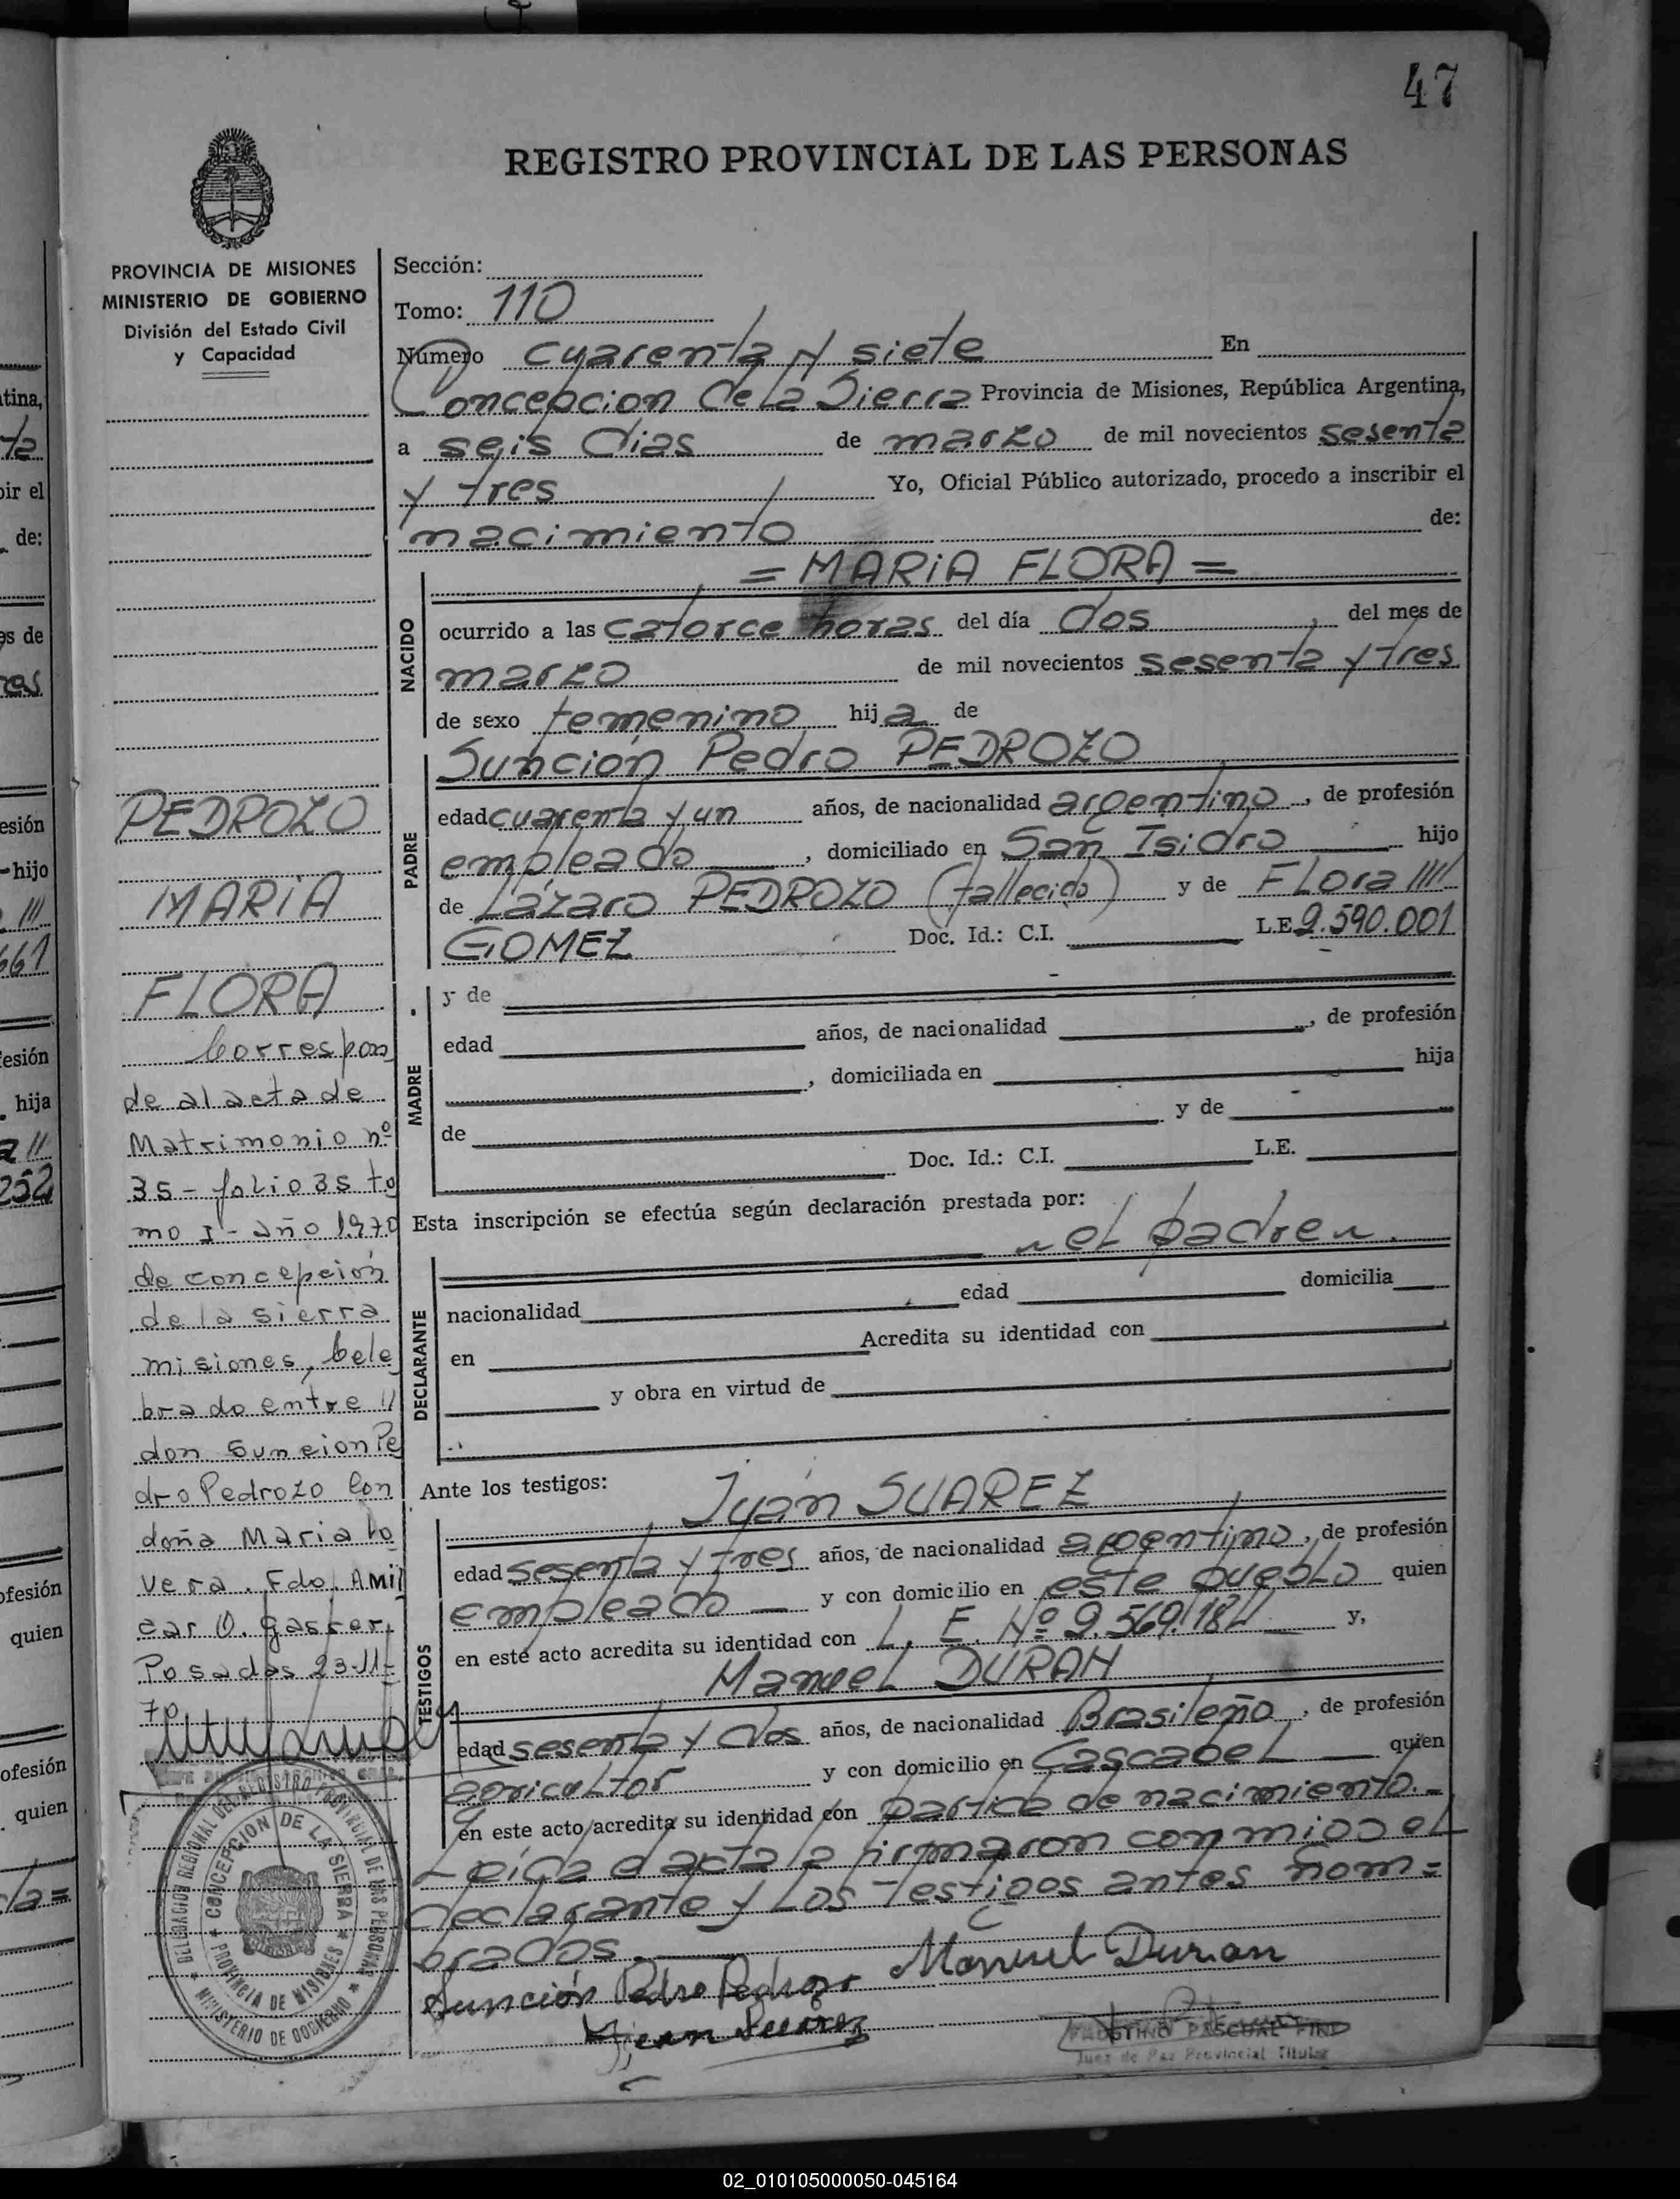 47
REGISTRO PROVINCIAL DE LAS PERSONAS
PROVINCIA DE MISIONES
MINISTERIO DE GOBIERNO
División del Estado Civil
y Capacidad
PEDROZO
MARIA
FLORA
Correspon
de al acta de
Matrimonio nº
35 - folio 35 to
mo I - año 1970
de concepción
de la sierra
misiones, Cele
brado entre //
don Suncion Pe
dro Pedrozo Con
doña Maria Lo
vera. Fdo. Amil
car O. Gasker.
Posadas 23-11-
70
DELEGACION REGIONAL DEL REGISTRO PROVINCIAL DE LAS PERSONAS
MINISTERIO DE GOBIERNO
CONCEPCION DE LA SIERRA
PROVINCIA DE MISIONES
Sección:
Tomo: 110
Número cuarenta y siete En
Concepcion de La Sierra Provincia de Misiones, República Argentina,
a seis dias de marzo de mil novecientos sesenta
y tres Yo, Oficial Público autorizado, procedo a inscribir el
nacimiento de:
= MARIA FLORA =
NACIDO
ocurrido a las catorce horas del día dos, del mes de
marzo de mil novecientos sesenta y tres
de sexo femenino hija de
Sunción Pedro PEDROZO
PADRE
edad cuarenta y un años, de nacionalidad argentino, de profesión
empleado, domiciliado en San Isidro hijo
de Lázaro PEDROZO (fallecido) y de Flora ////
GOMEZ Doc. Id.: C.I. L.E. 2.590.001
MADRE
y de
edad años, de nacionalidad , de profesión
, domiciliada en hija
de y de
Doc. Id.: C.I. L.E.
Esta inscripción se efectúa según declaración prestada por:
el padre
DECLARANTE
nacionalidad edad domicilia
en Acredita su identidad con
y obra en virtud de
Ante los testigos:
Juan SUAREZ
TESTIGOS
edad sesenta y tres años, de nacionalidad argentino, de profesión
Empleado y con domicilio en este pueblo quien
en este acto acredita su identidad con L. E. Nº 2.569.184 y,
Manuel DURAN
edad sesenta y dos años, de nacionalidad Brasileño, de profesión
agricultor y con domicilio en Cascabel quien
en este acto acredita su identidad con partida de nacimiento.-
Leida el acta la firmaron conmigo el
declarante y Los testigos antes nom=
brados.
Sunción Pedro Pedrozo Manuel Duran
Juan Suárez
FAUSTINO PASCUAL FIND
Juez de Paz Provincial Titular
02_010105000050-045164